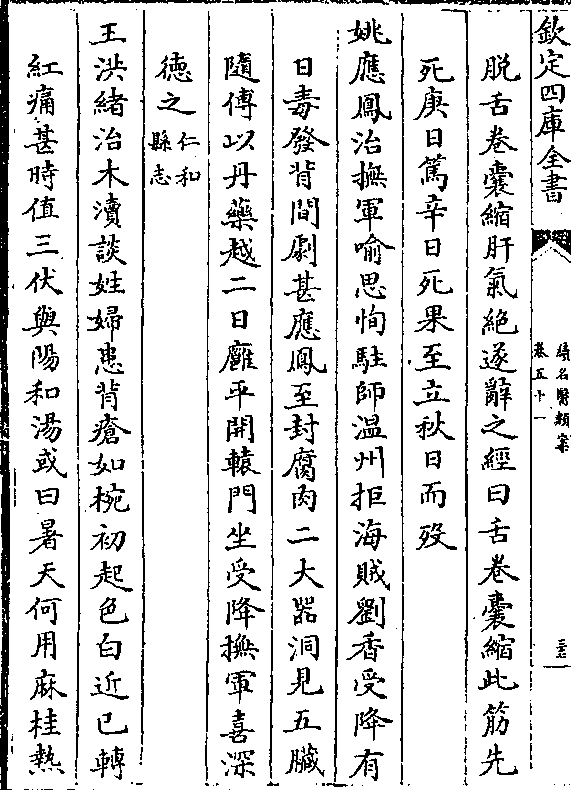 欽定四庫全書
續名醫類案
卷五十一
三
脱舌卷囊縮肝氣絶遂辭之經曰舌卷囊縮此筋先
死庚日篤辛日死果至立秋日而殁
姚應鳳治撫軍喻思恂駐師温州拒海賊劉香受降有
日毒發背間劇甚應鳳至封腐肉二大器洞見五臓
隨傅以丹藥越二日癰平開轅門坐受降撫軍喜深
德之仁和縣志
王洪緒治木瀆談姓婦患背瘡如椀初起色白近已轉
紅痛甚時值三伏與陽和湯或曰暑天何用麻桂熱